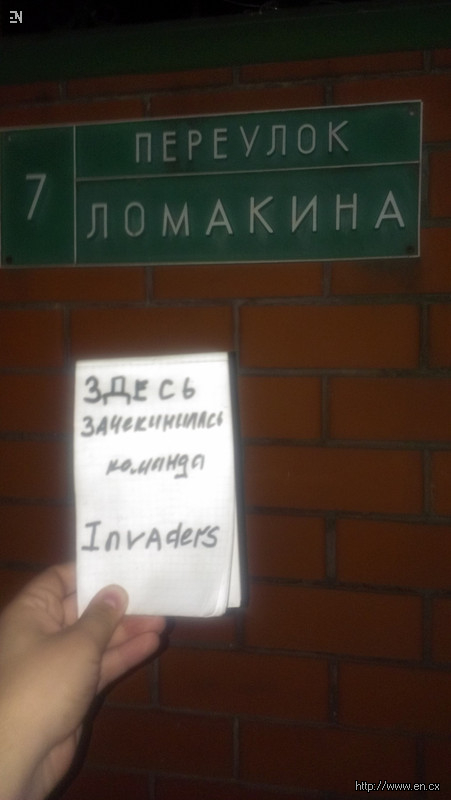 EN
7
ПЕРЕУЛОК
ЛОМАКИНА
ЗДЕСЬ
ЗАЧЕКИНИЛАСЬ
команда
Invaders
http://www.en.cx